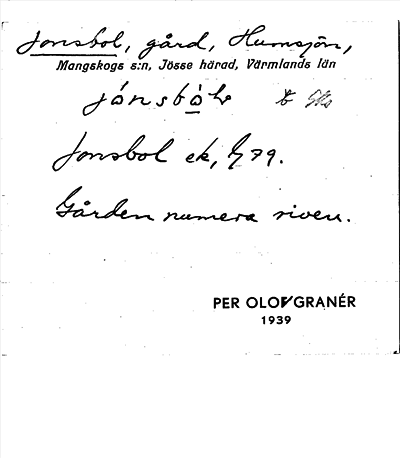 Jonsbol, gård, Humsjön,
Mangskogs s:n, Jösse härad, Värmlands län
Jonsbol ek, G 79.
Gården numera riven.
PER OLOV GRANÉR
1939